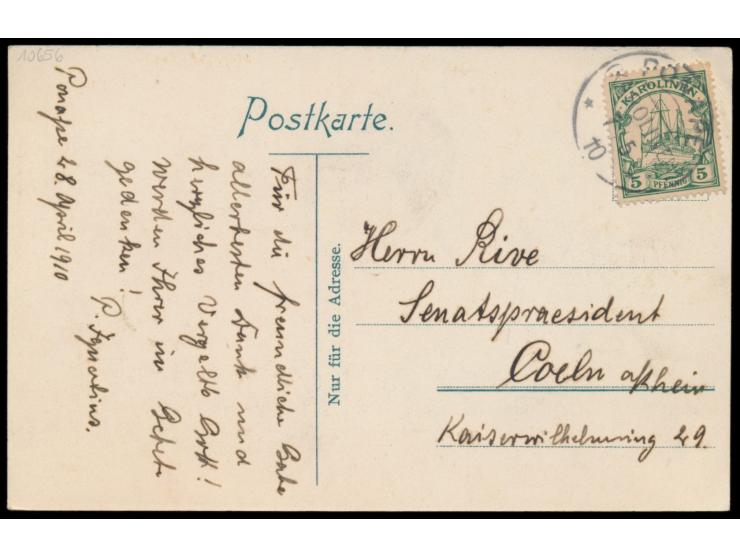 10656
Ponape 28. April 1910
Postkarte.
Für die freundliche Gabe
allerbesten Dank und
herzliches Vergelts Gott!
Werden Ihrer im Gebete
gedenken!
P. Ignatius.
Nur für die Adresse.
PONAPE
* 1 5 10
KAROLINEN
5 PFENNIG 5
Herrn Rive
Senatspraesident
Coeln a/Rhein
Kaiserwilhelmring 29.